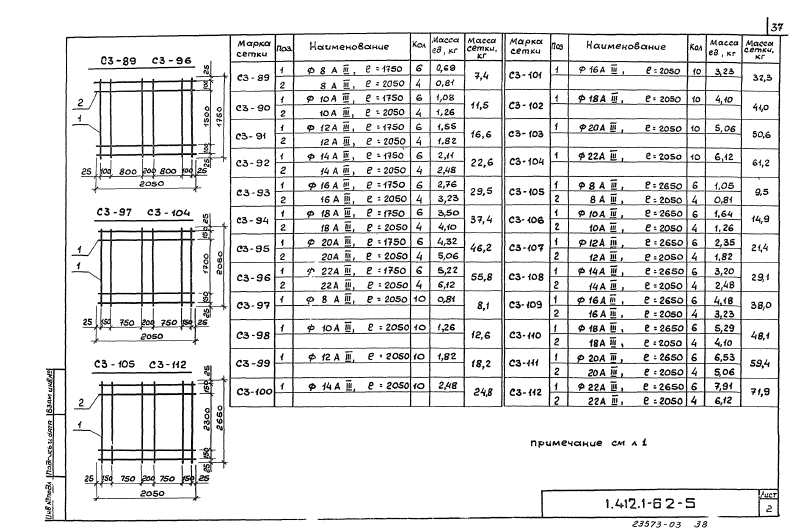 37
С3-89 С3-96
25
100
1500
1750
100
25
2
1
25 100 800 200 800 100 25
2050
С3-97 С3-104
25
150
1700
2050
150
25
1
1
25 150 750 200 750 150 25
2050
С3-105 С3-112
25
150
2300
2650
150
25
2
1
25 150 750 200 750 150 25
2050
Марка сетки Поз. Наименование Кол Масса ед, кг Масса сетки, кг
С3-89 1 Ф 8 А III, ℓ = 1750 6 0,69 7,4
2 8 А III, ℓ = 2050 4 0,81
С3-90 1 Ф 10А III, ℓ = 1750 6 1,08 11,5
2 10А III, ℓ = 2050 4 1,26
С3-91 1 Ф 12А III, ℓ = 1750 6 1,55 16,6
2 12А III, ℓ = 2050 4 1,82
С3-92 1 Ф 14А III, ℓ = 1750 6 2,11 22,6
2 14А III, ℓ = 2050 4 2,48
С3-93 1 Ф 16А III, ℓ = 1750 6 2,76 29,5
2 16А III, ℓ = 2050 4 3,23
С3-94 1 Ф 18А III, ℓ = 1750 6 3,50 37,4
2 18А III, ℓ = 2050 4 4,10
С3-95 1 Ф 20А III, ℓ = 1750 6 4,32 46,2
2 20А III, ℓ = 2050 4 5,06
С3-96 1 Ф 22А III, ℓ = 1750 6 5,22 55,8
2 22А III, ℓ = 2050 4 6,12
С3-97 1 Ф 8 А III, ℓ = 2050 10 0,81 8,1
С3-98 1 Ф 10А III, ℓ = 2050 10 1,26 12,6
С3-99 1 Ф 12А III, ℓ = 2050 10 1,82 18,2
С3-100 1 Ф 14А III, ℓ = 2050 10 2,48 24,8
Марка сетки Поз Наименование Кол Масса ед, кг Масса сетки, кг
С3-101 1 Ф 16А III, ℓ = 2050 10 3,23 32,3
С3-102 1 Ф 18А III, ℓ = 2050 10 4,10 41,0
С3-103 1 Ф20А III, ℓ = 2050 10 5,06 50,6
С3-104 1 Ф22А III, ℓ = 2050 10 6,12 61,2
С3-105 1 Ф 8 А III, ℓ = 2650 6 1,05 9,5
2 8 А III, ℓ = 2050 4 0,81
С3-106 1 Ф 10А III, ℓ = 2650 6 1,64 14,9
2 10А III, ℓ = 2050 4 1,26
С3-107 1 Ф12А III, ℓ = 2650 6 2,35 21,4
2 12А III, ℓ = 2050 4 1,82
С3-108 1 Ф14А III, ℓ = 2650 6 3,20 29,1
2 14А III, ℓ = 2050 4 2,48
С3-109 1 Ф16А III, ℓ = 2650 6 4,18 38,0
2 16А III, ℓ = 2050 4 3,23
С3-110 1 Ф 18А III, ℓ = 2650 6 5,29 48,1
2 18А III, ℓ = 2050 4 4,10
С3-111 1 Ф 20А III, ℓ = 2650 6 6,53 59,4
2 20А III, ℓ = 2050 4 5,06
С3-112 1 Ф 22А III, ℓ = 2650 6 7,91 71,9
2 22А III, ℓ = 2050 4 6,12
примечание см л 1
1.412.1-6 2-5
Лист
2
23573-03 38
Инв № подл. Подпись и дата Взам инв №